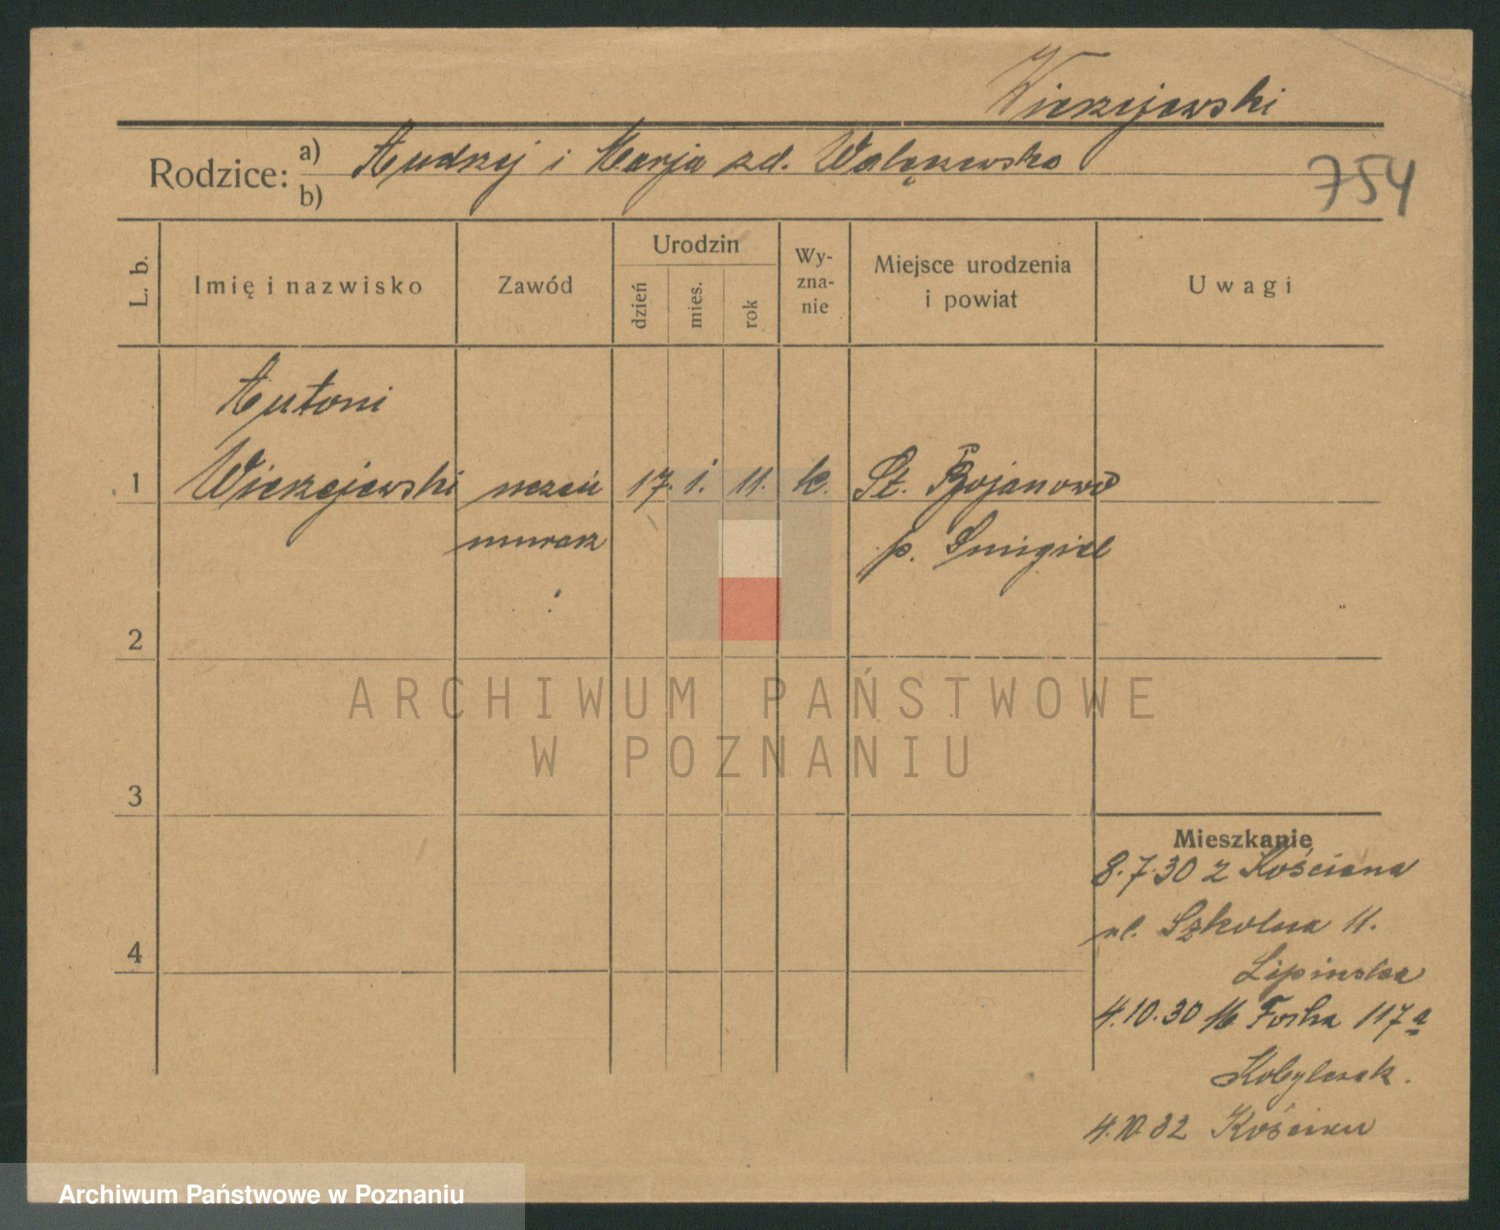 Wierzejewski
Rodzice: a) Andrzej i Marja zd. Walęzewska
b)
754
L. b.
Imię i nazwisko
Zawód
Urodzin
dzień
mies.
rok
Wy-
zna-
nie
Miejsce urodzenia
i powiat
Uwagi
Antoni
1 Wierzejewski uczeń 17. i. 11. k. St. Bojanowo
murarz p. Smigiel
2
ARCHIWUM PAŃSTWOWE
W POZNANIU
3
Mieszkanie
8.7.30 z Kościana
ul. Szkolna 11.
Lipinska
4
4.10.30 Focha 117a
Kobylczak.
4.10.32 Kościan
Archiwum Państwowe w Poznaniu